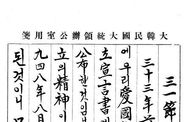 大韓民國大統領辦公室用箋
三一節
三十三年
에우리愛國
宣言書
公布할것임
立의精神이
九四八年八月
된것이니